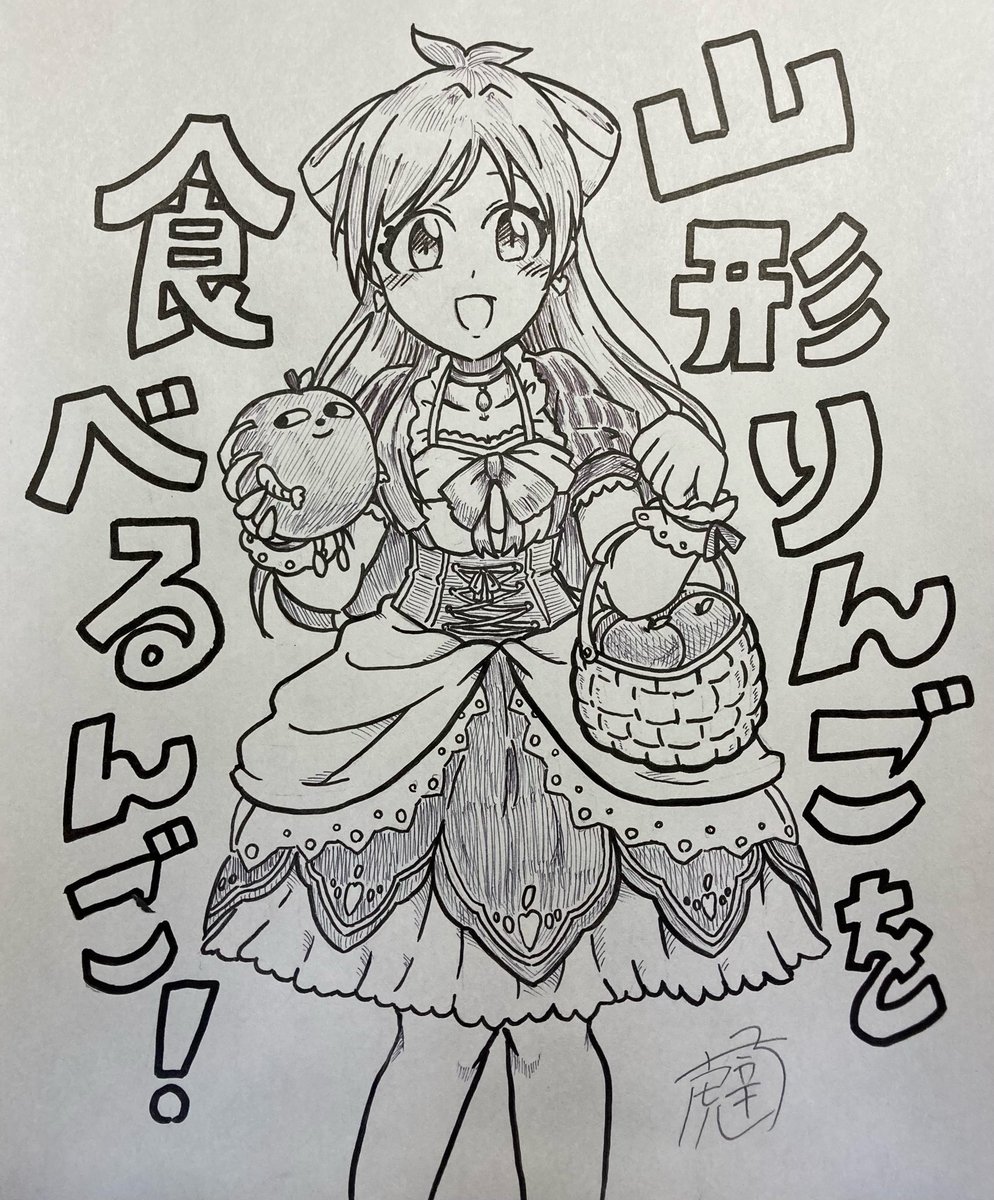 山形りんごを
食べるんご!